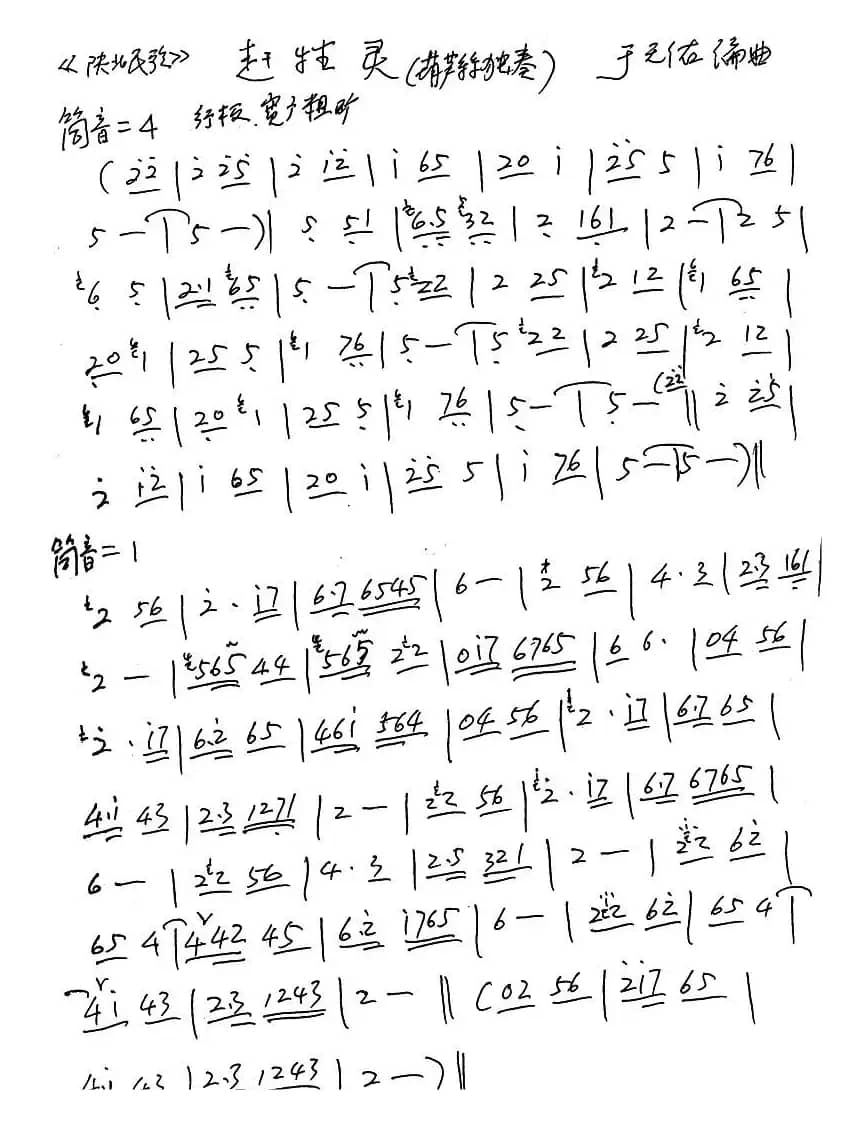 《陕北民歌》 赶牲灵(葫芦丝独奏) 于元佑编曲
筒音=4 行板 宽广粗旷
(2̇2̇ | 2̇ 2̇5̇ | 2̇ 1̇2̇ | 1̇ 65 | 20 1̇ | 2̇5̇ 5 | 1̇ 76 |
5 — | 5 —)‖ 5̣ 5̣1 | 6̣.5̣ 32 | 2 161 | 2 — | 2 5 |
6̣ 5̣ | 2.1 6̣5̣ | 5̣ — | 5̣ 22 | 2 25 | 2 12 | 1 6̣5̣ |
20 1 | 25 5̣ | 1 7̣6̣ | 5̣ — | 5̣ 22 | 2 25 | 2 12 |
1 6̣5̣ | 20 1 | 25 5̣ | 1 7̣6̣ | 5̣ — | 5̣ — (2̇2̇ ‖ 2̇ 2̇5̇ |
2̇ 1̇2̇ | 1̇ 65 | 20 1̇ | 2̇5̇ 5 | 1̇ 76 | 5 — | 5 —)‖
筒音=1
2 56 | 2̇ · 1̇7 | 6.7 6545 | 6 — | 2 56 | 4 · 3 | 2.3 161 |
2 — | 565 44 | 565 22 | 01̇7 6765 | 6 6 · | 04 56 |
2̇ · 1̇7 | 6.2̇ 65 | 461̇ 564 | 04 56 | 2 · 1̇7 | 6.7 65 |
4.1̇ 43 | 2.3 1271 | 2 — | 22 56 | 2 · 1̇7 | 6.7 6765 |
6 — | 22 56 | 4 · 3 | 2.5 321 | 2 — | 22 62̇ |
65 4 | 442 45 | 6.2̇ 1̇765 | 6 — | 22 62̇ | 65 4 |
41̇ 43 | 2.3 1243 | 2 — ‖ (02 56 | 2̇1̇7 65 |
41̇ 43 | 2.3 1243 | 2 —)‖